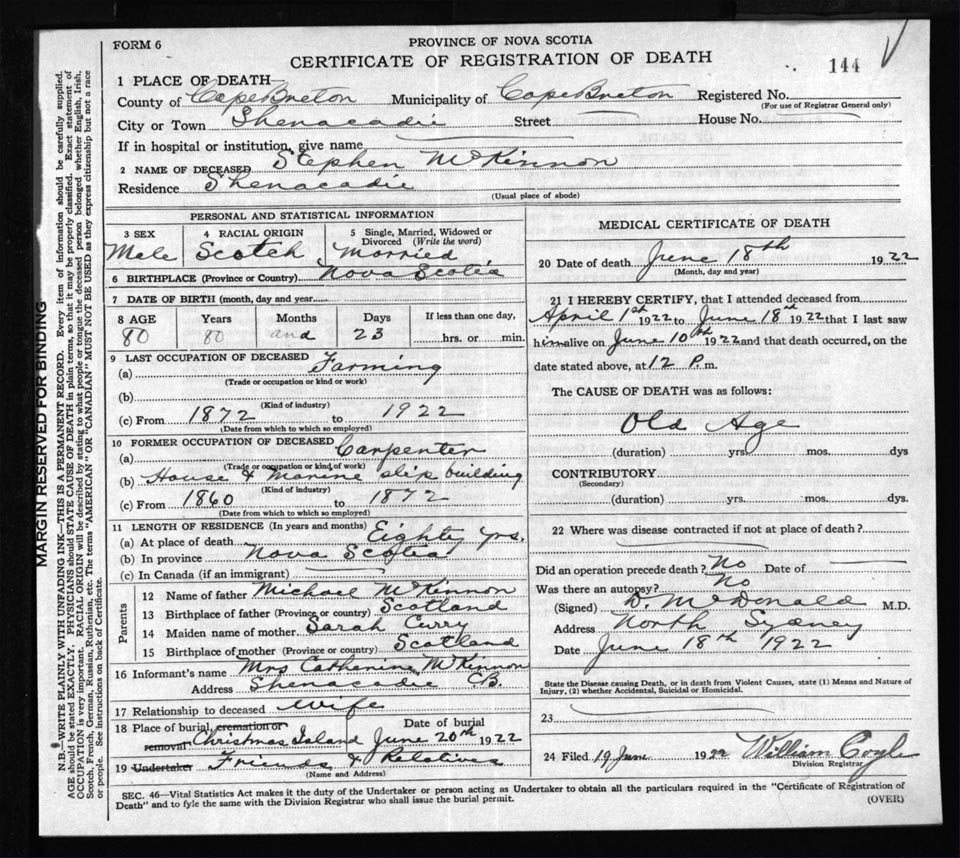 FORM 6
PROVINCE OF NOVA SCOTIA
CERTIFICATE OF REGISTRATION OF DEATH
144
1 PLACE OF DEATH—
County of Cape Breton Municipality of Cape Breton Registered No.
(For use of Registrar General only)
City or Town Shenacadie Street House No.
If in hospital or institution, give name
2 NAME OF DECEASED Stephen McKinnon
Residence Shenacadie
(Usual place of abode)
PERSONAL AND STATISTICAL INFORMATION
3 SEX 4 RACIAL ORIGIN 5 Single, Married, Widowed or
Divorced (Write the word)
Male Scotch Married
6 BIRTHPLACE (Province or Country) Nova Scotia
7 DATE OF BIRTH (month, day and year)
8 AGE Years Months Days If less than one day,
80 80 and 23 hrs. or min.
9 LAST OCCUPATION OF DECEASED
(a) Farming
(Trade or occupation or kind or work)
(b)
(Kind of industry)
(c) From 1872 to 1922
(Date from which to which so employed)
10 FORMER OCCUPATION OF DECEASED
(a) Carpenter
(Trade or occupation or kind of work)
(b) House & Marene slip building
(Kind of industry)
(c) From 1860 to 1872
(Date from which to which so employed)
11 LENGTH OF RESIDENCE (In years and months)
(a) At place of death Eighty yrs.
(b) In province Nova Scotia
(c) In Canada (if an immigrant)
Parents
12 Name of father Michael McKinnon
13 Birthplace of father (Province or country) Scotland
14 Maiden name of mother Sarah Curry
15 Birthplace of mother (Province or country) Scotland
16 Informant's name Mrs Catherine McKinnon
Address Shenacadie C.B.
17 Relationship to deceased Wife
18 Place of burial, cremation or Date of burial
removal Christmas Island June 20th 1922
19 Undertaker Friends & Relatives
(Name and Address)
MEDICAL CERTIFICATE OF DEATH
20 Date of death June 18th 1922
(Month, day and year)
21 I HEREBY CERTIFY, that I attended deceased from
April 1st 1922 to June 18th 1922 that I last saw
him alive on June 10th 1922 and that death occurred, on the
date stated above, at 12 P. m.
The CAUSE OF DEATH was as follows:
Old Age
(duration) yrs. mos. dys
CONTRIBUTORY
(Secondary)
(duration) yrs. mos. dys.
22 Where was disease contracted if not at place of death?
Did an operation precede death? No Date of
Was there an autopsy? No
(Signed) D. McDonald M.D.
Address North Sydney
Date June 18th 1922
State the Disease causing Death, or in death from Violent Causes, state (1) Means and Nature of
Injury, (2) whether Accidental, Suicidal or Homicidal.
23
24 Filed 19 June 1922 William Coyle
Division Registrar
SEC. 46—Vital Statistics Act makes it the duty of the Undertaker or person acting as Undertaker to obtain all the particulars required in the "Certificate of Registration of
Death" and to fyle the same with the Division Registrar who shall issue the burial permit.
(OVER)
MARGIN RESERVED FOR BINDING
N.B.—WRITE PLAINLY WITH UNFADING INK—THIS IS A PERMANENT RECORD. Every item of information should be carefully supplied.
AGE should be stated EXACTLY. PHYSICIANS should STATE CAUSE OF DEATH in plain terms, so that it may be properly classified. Exact statement of
OCCUPATION is very important. RACIAL ORIGIN will be described by stating to what people or tongue the deceased person belonged whether English, Irish,
Scotch, French, German, Russian, Ruthenian, etc. The terms "AMERICAN" OR "CANADIAN" MUST NOT BE USED as they express citizenship but not a race
or people. See instructions on back of Certificate.